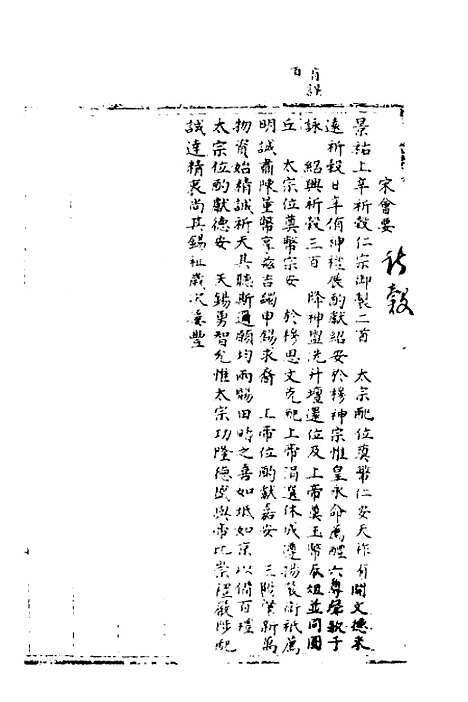 宋會要
祈穀
景祐上辛祈穀仁宗御製二首 太宗配位奠幣仁安天祚有開文德來
遠祈穀日辛侑神禮展酌獻紹安於穆神宗惟皇永命薦醴六尊聲歌千
詠 紹興祈穀三首 降神盥洗升壇還位及上帝奠玉幣奉俎並同圜
丘 太宗位奠幣宗安 於穆思文克配上帝涓選休成遵揚嚴衛祇薦
明誠肅陳量幣享茲吉蠲申錫來裔 上帝位酌獻嘉安 三陽資新萬
物資始精誠祈天其聽斯邇願均雨暘田時之喜如坻如京以備百禮
太宗位酌獻德安 天錫勇智允惟太宗功隆德盛與帝比崇禮嚴陟配
誠達精衷尚其錫祉歲次屢豐